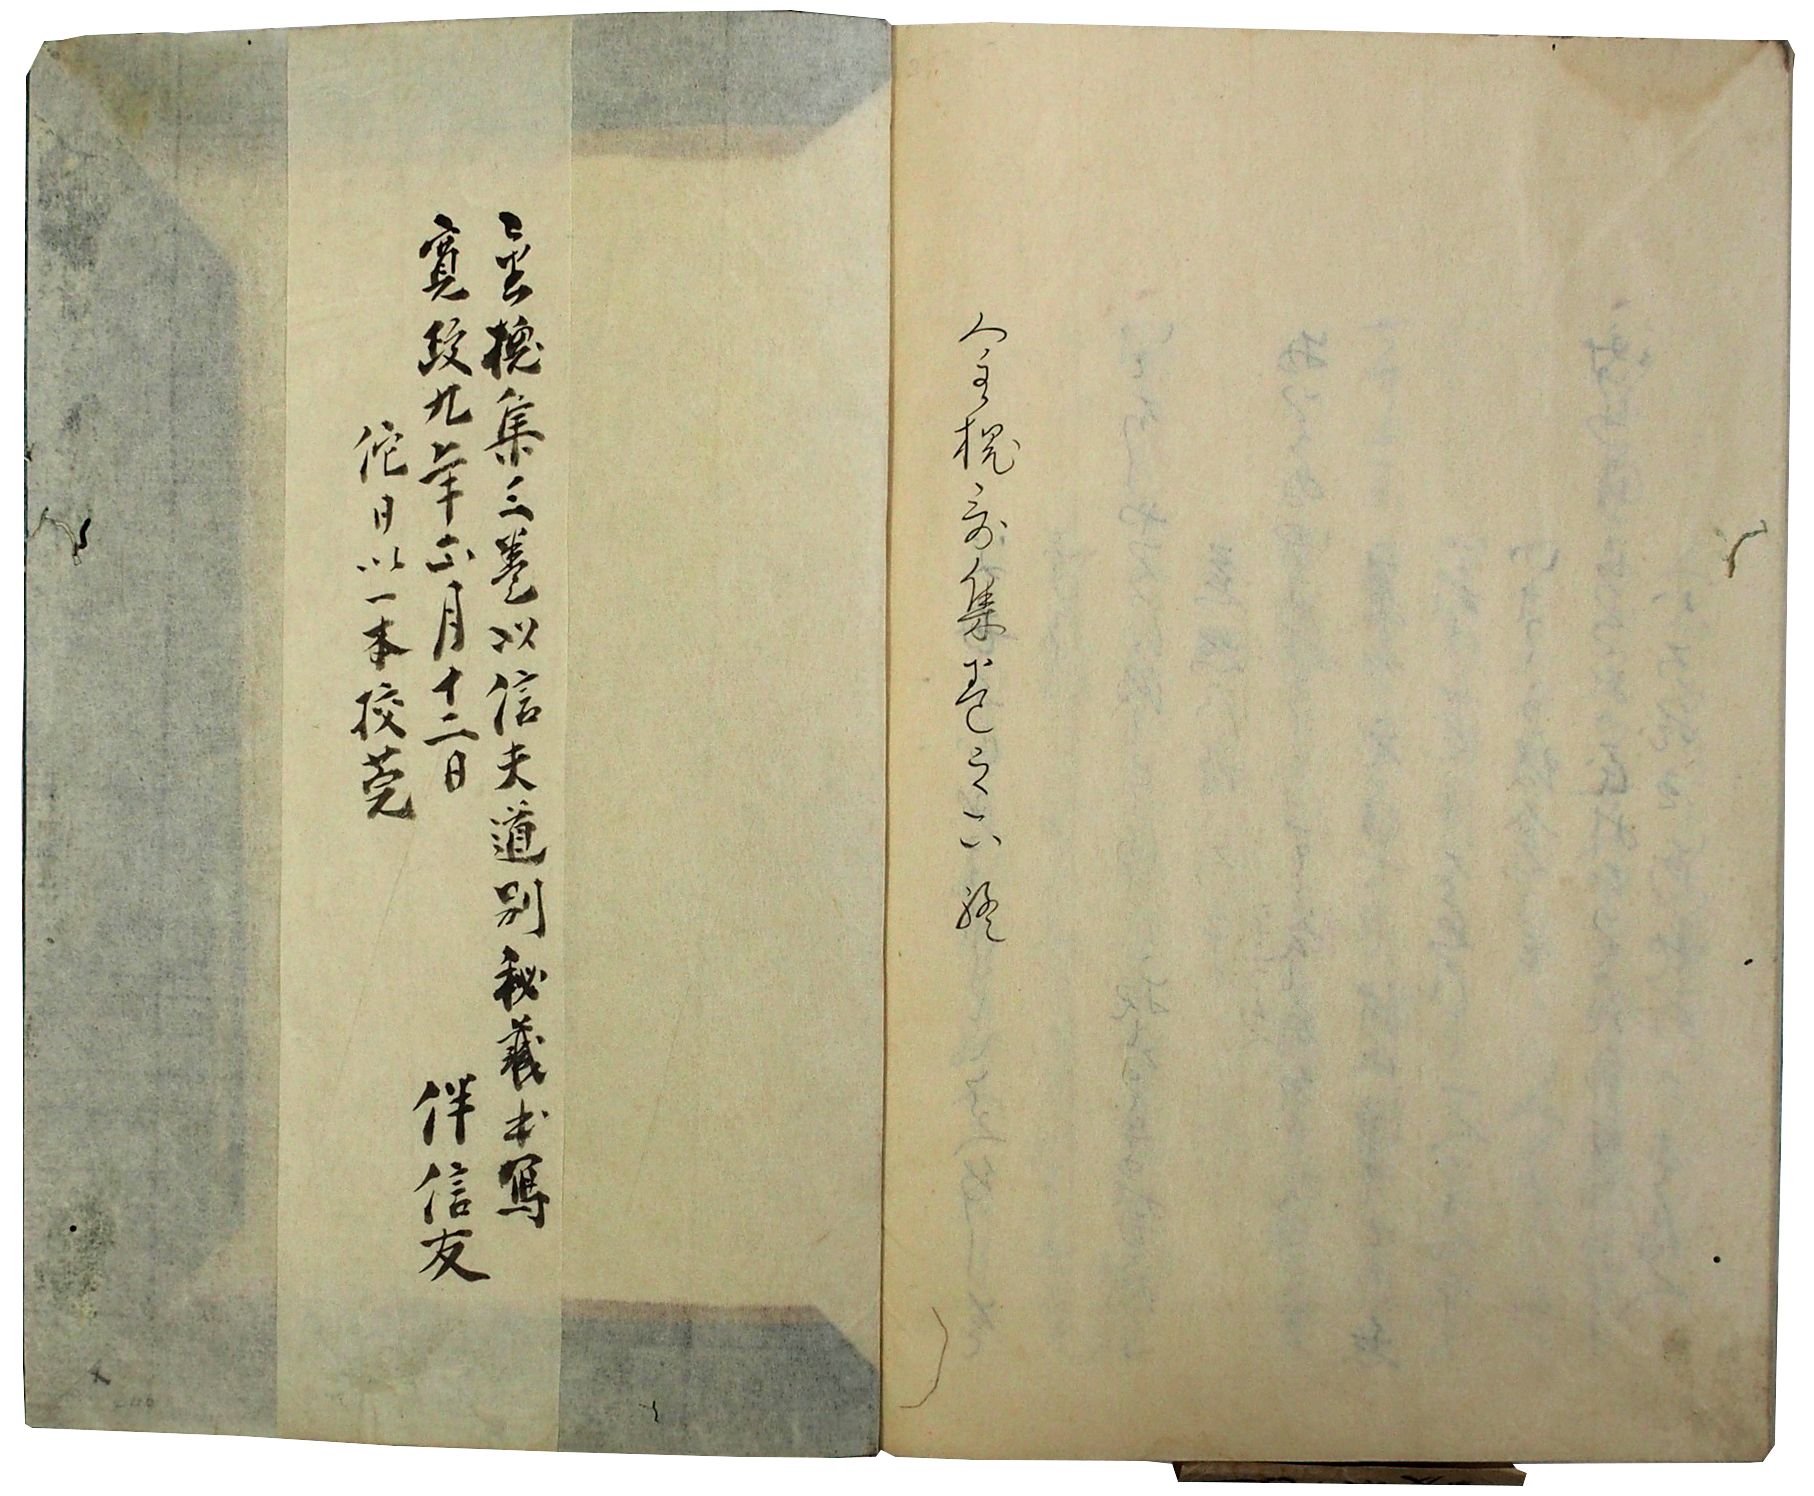 金槐哥集巻之下終
金槐集三巻以信夫道別秘蔵本写
寛政九年正月十二日 伴信友
佗日以一本挍莞